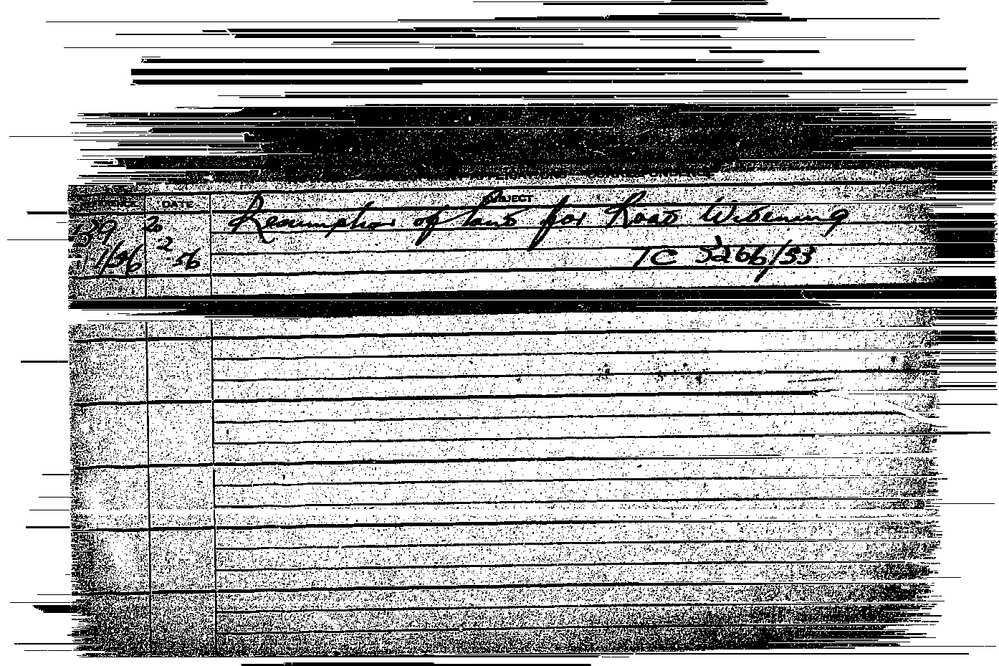 DATE SUBJECT
20 Resumption of land for Road Widening
2
56 TC 3266/53